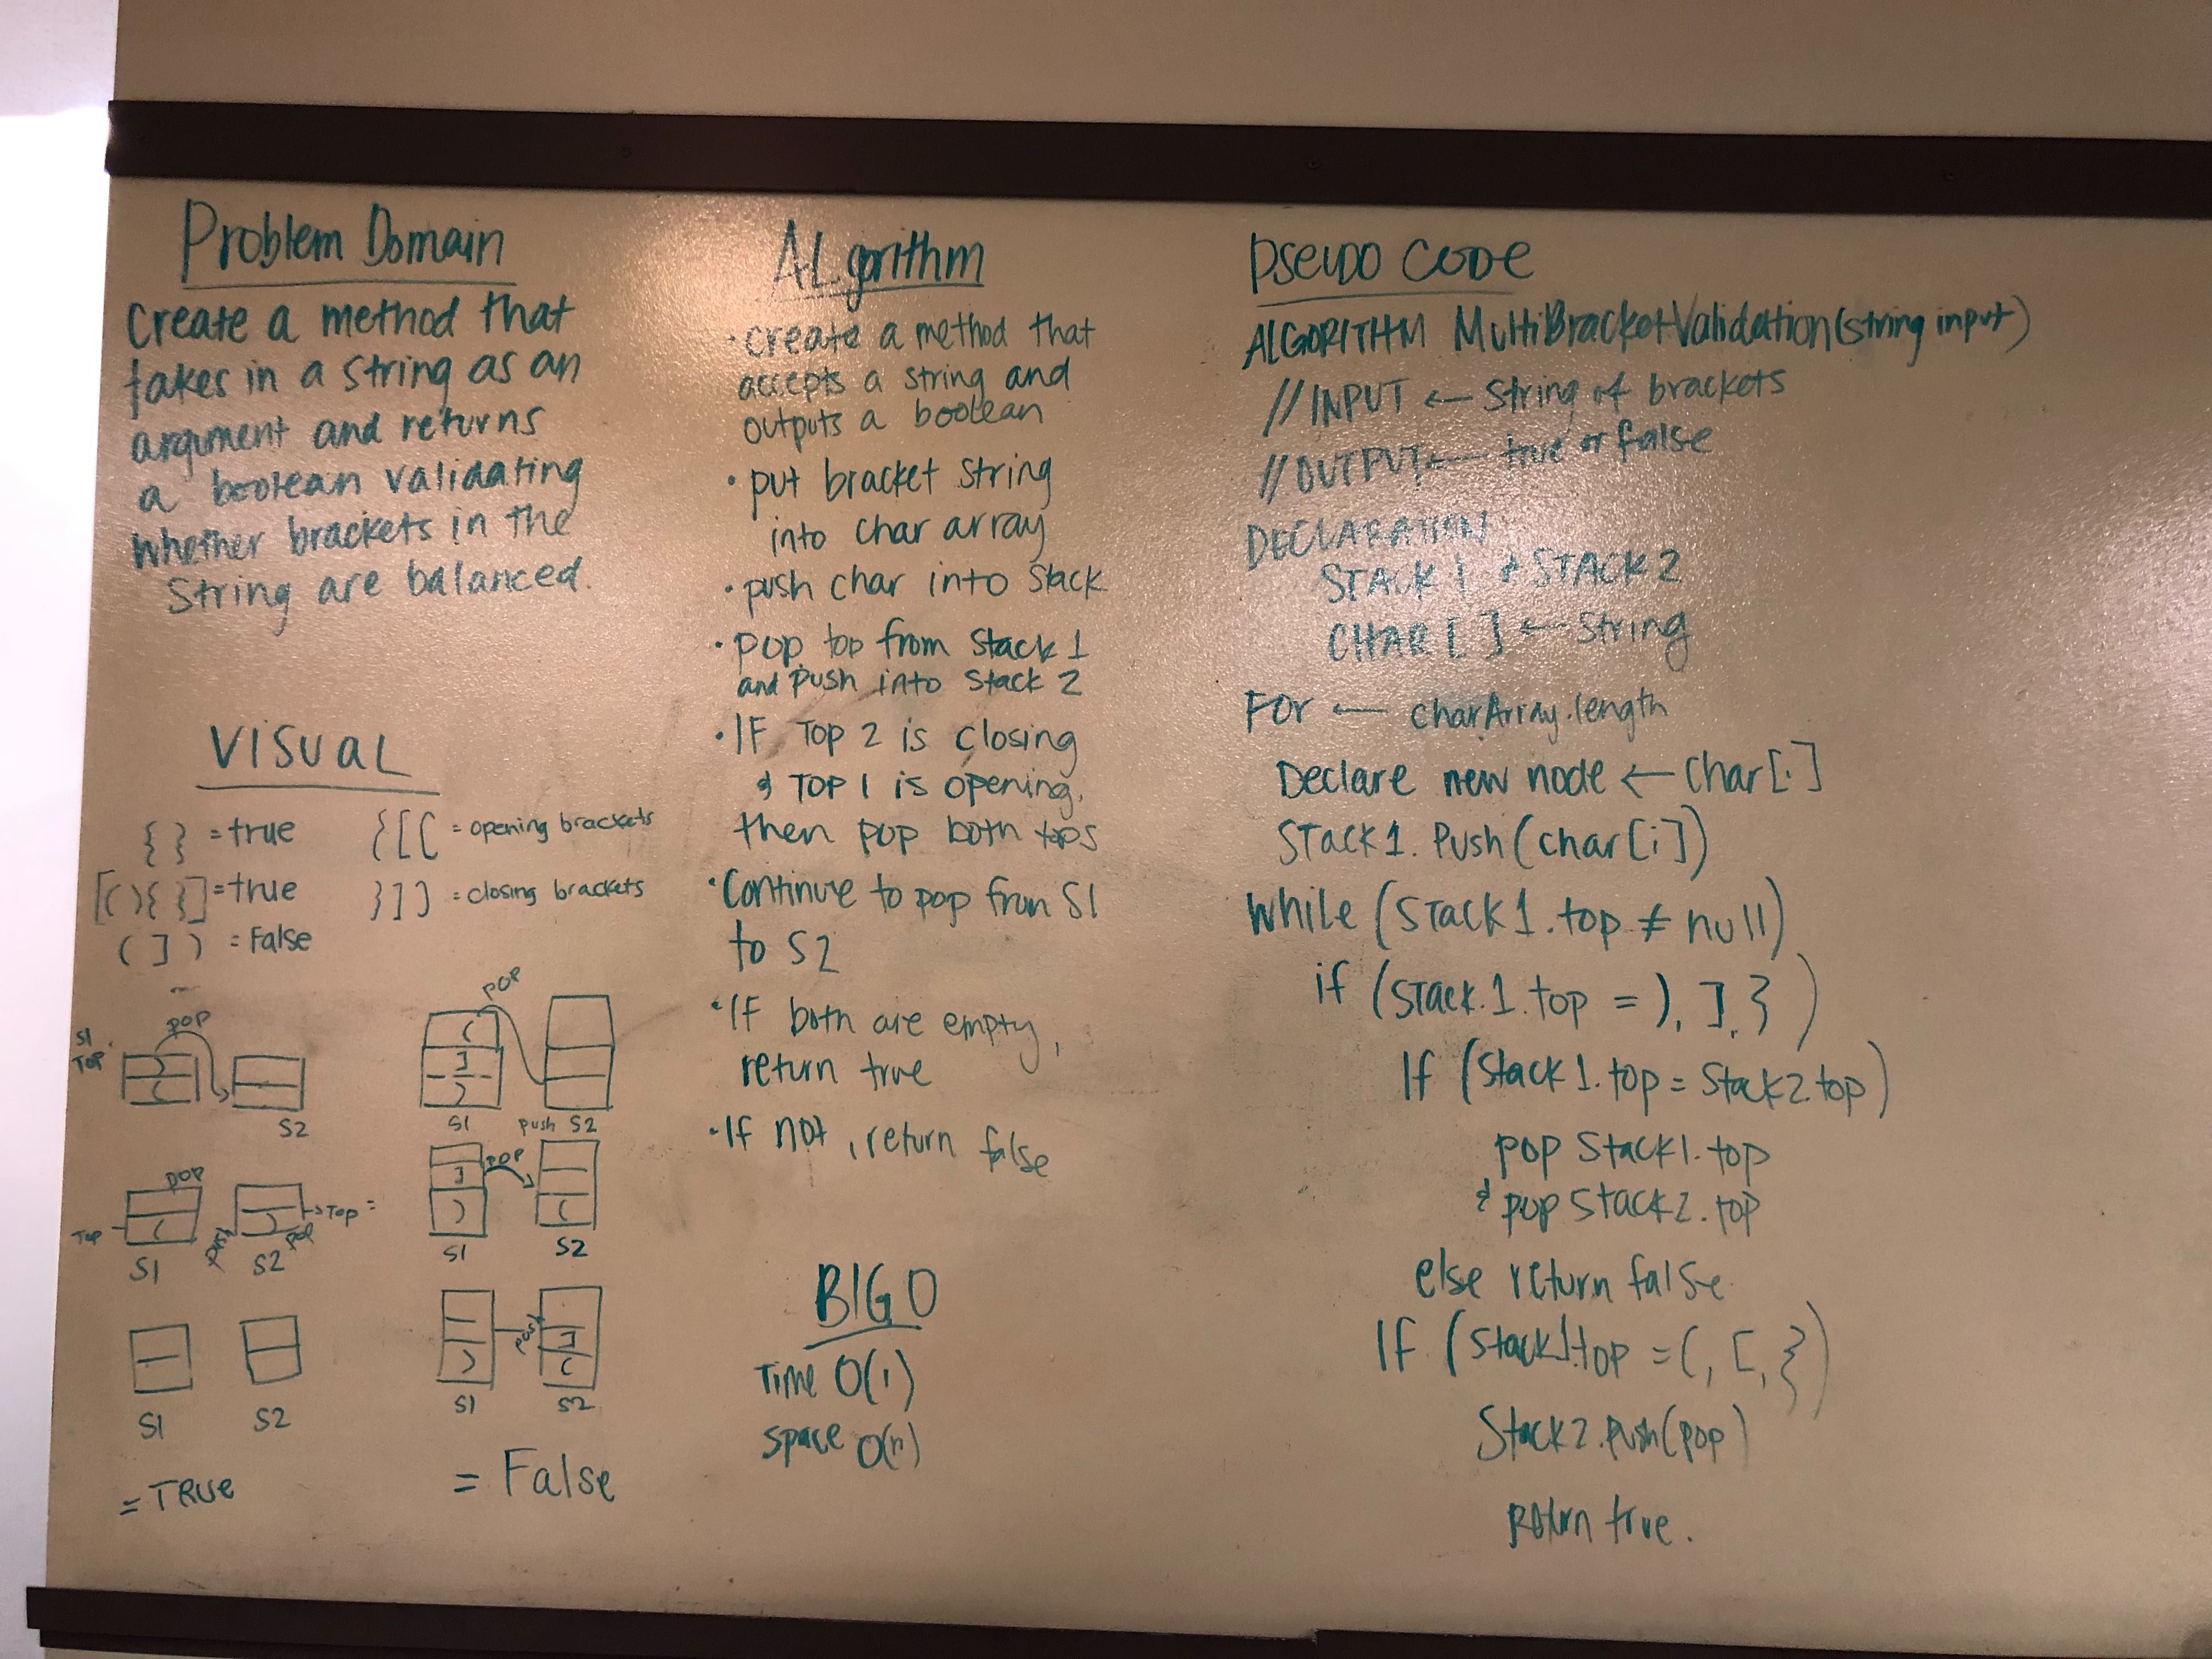 Problem Domain
Create a method that
takes in a string as an
argument and returns
a boolean validating
whether brackets in the
String are balanced.
VISUAL
{ } = true
[(){}] = true
(]) = False
{[( = opening brackets
}]) = closing brackets
S1
TOP
POP
)
(
S2
POP
TOP
(
S1
)
push
POP
→TOP =
S2
S1
S2
= TRUE
POP
(
]
)
S1
push S2
]
POP
)
(
S1
S2
push
)
]
(
S1
S2
= False
ALgorithm
• create a method that
accepts a string and
outputs a boolean
• put bracket string
into char array
• push char into stack
• pop top from Stack 1
and push into stack 2
• IF TOP 2 is closing
& TOP 1 is opening,
then pop both tops
• Continue to pop from S1
to S2
• If both are empty,
return true
• If not, return false
BIG O
Time O(1)
Space O(n)
PSEUDO CODE
ALGORITHM MultiBracketValidation(string input)
//INPUT ← String of brackets
//OUTPUT ← true or false
DECLARATION
STACK 1 & STACK 2
CHAR [ ] ← String
FOr ← charArray.length
Declare new node ← Char[i]
STACK1. Push(char[i])
while (STACK1.top ≠ null)
if (STACK.1.top = ), ], })
If (Stack1.top = Stack2.top)
pop Stack1.top
& pop Stack2.top
else return false
If (Stack1.top = (, [, })
Stack2.push(pop)
Return true.